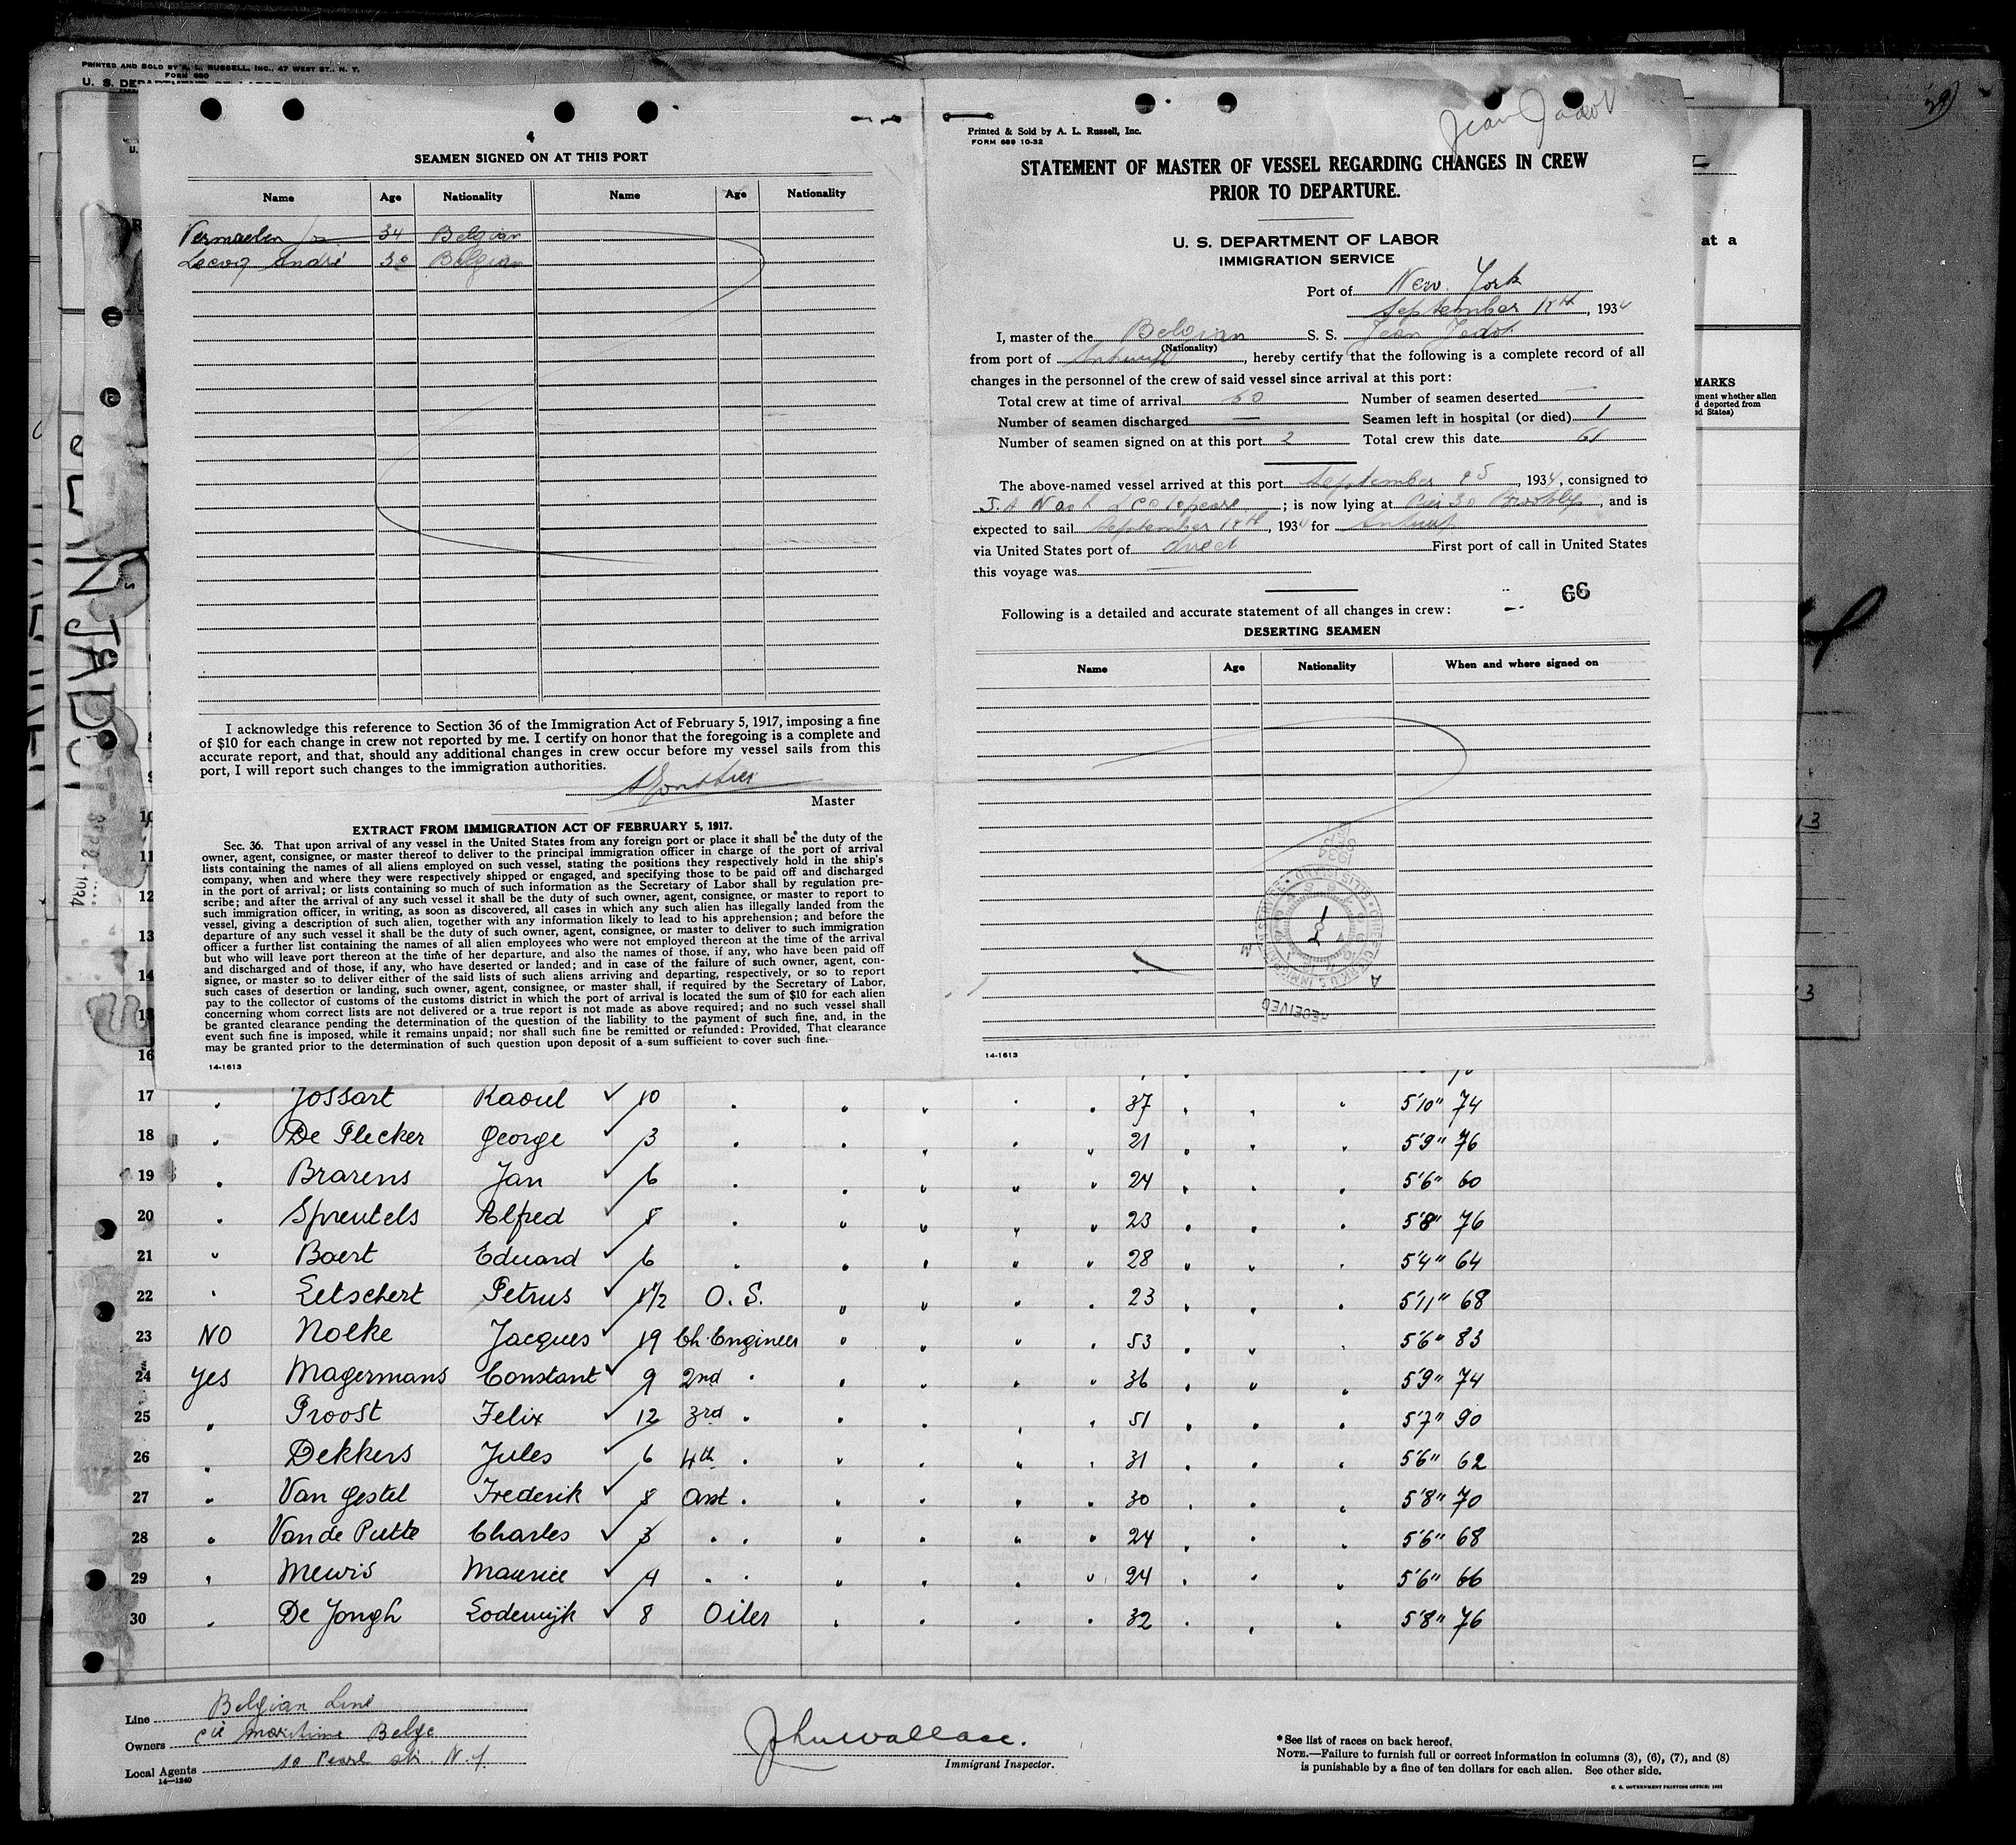 PRINTED AND SOLD BY A. L. RUSSELL, INC., 47 WEST ST., N. Y.
FORM 680
4
SEAMEN SIGNED ON AT THIS PORT
Name Age Nationality Name Age Nationality
Vermaelen 34 Belgian
Lecoq André 30 Belgian
I acknowledge this reference to Section 36 of the Immigration Act of February 5, 1917, imposing a fine
of $10 for each change in crew not reported by me. I certify on honor that the foregoing is a complete and
accurate report, and that, should any additional changes in crew occur before my vessel sails from this
port, I will report such changes to the immigration authorities.
Master
EXTRACT FROM IMMIGRATION ACT OF FEBRUARY 5, 1917.
Sec. 36. That upon arrival of any vessel in the United States from any foreign port or place it shall be the duty of the
owner, agent, consignee, or master thereof to deliver to the principal immigration officer in charge of the port of arrival
lists containing the names of all aliens employed on such vessel, stating the positions they respectively hold in the ship's
company, when and where they were respectively shipped or engaged, and specifying those to be paid off and discharged
in the port of arrival; or lists containing so much of such information as the Secretary of Labor shall by regulation pre-
scribe; and after the arrival of any such vessel it shall be the duty of such owner, agent, consignee, or master to report to
such immigration officer, in writing, as soon as discovered, all cases in which any such alien has illegally landed from the
vessel, giving a description of such alien, together with any information likely to lead to his apprehension; and before the
departure of any such vessel it shall be the duty of such owner, agent, consignee, or master to deliver to such immigration
officer a further list containing the names of all alien employees who were not employed thereon at the time of the arrival
but who will leave port thereon at the time of her departure, and also the names of those, if any, who have been paid off
and discharged and of those, if any, who have deserted or landed; and in case of the failure of such owner, agent, con-
signee, or master so to deliver either of the said lists of such aliens arriving and departing, respectively, or so to report
such cases of desertion or landing, such owner, agent, consignee, or master shall, if required by the Secretary of Labor,
pay to the collector of customs of the customs district in which the port of arrival is located the sum of $10 for each alien
concerning whom correct lists are not delivered or a true report is not made as above required; and no such vessel shall
be granted clearance pending the determination of the question of the liability to the payment of such fine, and, in the
event such fine is imposed, while it remains unpaid; nor shall such fine be remitted or refunded: Provided, That clearance
may be granted prior to the determination of such question upon deposit of a sum sufficient to cover such fine.
14-1613
Jean Jadot
Printed & Sold by A. L. Russell, Inc.
FORM 689 10-32
STATEMENT OF MASTER OF VESSEL REGARDING CHANGES IN CREW
PRIOR TO DEPARTURE.
U. S. DEPARTMENT OF LABOR
IMMIGRATION SERVICE
Port of New York
September 18th, 1934
I, master of the Belgian S. S. Jean Jadot
(Nationality)
from port of Antwerp, hereby certify that the following is a complete record of all
changes in the personnel of the crew of said vessel since arrival at this port:
Total crew at time of arrival 60 Number of seamen deserted —
Number of seamen discharged — Seamen left in hospital (or died) 1
Number of seamen signed on at this port 2 Total crew this date 61
The above-named vessel arrived at this port September, 1934, consigned to
; is now lying at Pier 30 Brooklyn, and is
expected to sail September 18th, 1934 for Antwerp
via United States port of direct First port of call in United States
this voyage was —
66
Following is a detailed and accurate statement of all changes in crew:
DESERTING SEAMEN
Name Age Nationality When and where signed on
RECEIVED
14-1613
17 Jossart Raoul 10 37 5'10" 74
18 De Plecker George 3 21 5'9" 76
19 Brarens Jan 6 24 5'6" 60
20 Spreutels Alfred 8 23 5'8" 76
21 Baert Eduard 6 28 5'4" 64
22 Letschert Petrus 1 1/2 O. S. 23 5'11" 68
23 NO Nolke Jacques 19 Ch. Engineer 53 5'6" 83
24 Yes Magermans Constant 9 2nd 36 5'9" 74
25 Proost Felix 12 3rd 51 5'7" 90
26 Dekkers Jules 6 4th 31 5'6" 62
27 Van Gestel Frederik 8 Asst. 30 5'8" 70
28 Van de Putte Charles 3 24 5'6" 68
29 Mewis Maurice 4 24 5'6" 66
30 De Jongh Lodewijk 8 Oiler 32 5'8" 76
Line Belgian Line
Owners Cie Maritime Belge
Local Agents 10 Pearl str. N.Y.
14—1240
John Wallace.
Immigrant Inspector.
*See list of races on back hereof.
NOTE.—Failure to furnish full or correct information in columns (3), (6), (7), and (8)
is punishable by a fine of ten dollars for each alien. See other side.